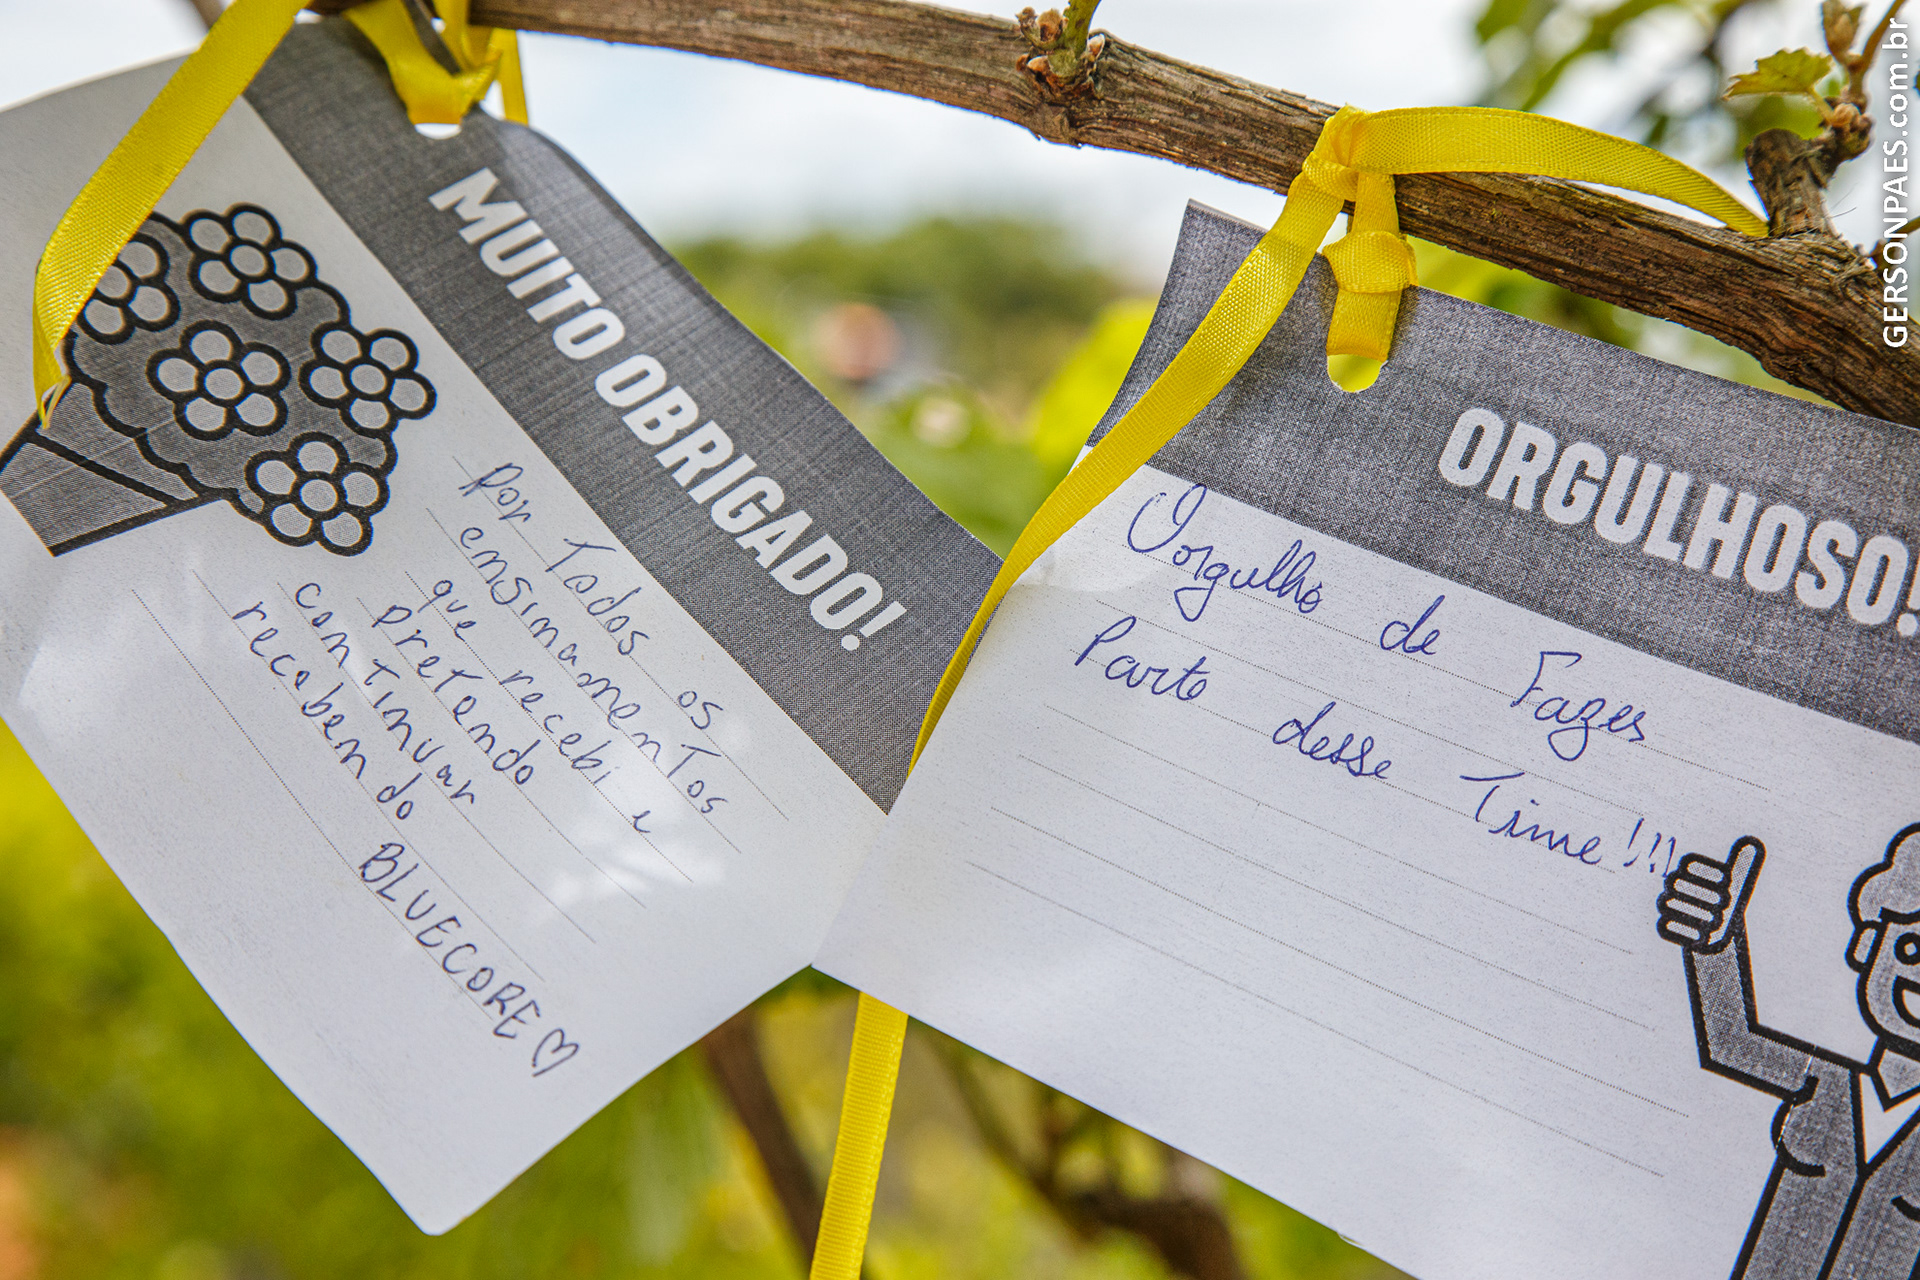 MUITO OBRIGADO!
por Todos os
ensinamentos
que recebi e
pretendo
continuar
recebendo
BLUECORE
ORGULHOSO!
Orgulho de Fazer
Parte desse Time!!!
GERSONPAES.com.br